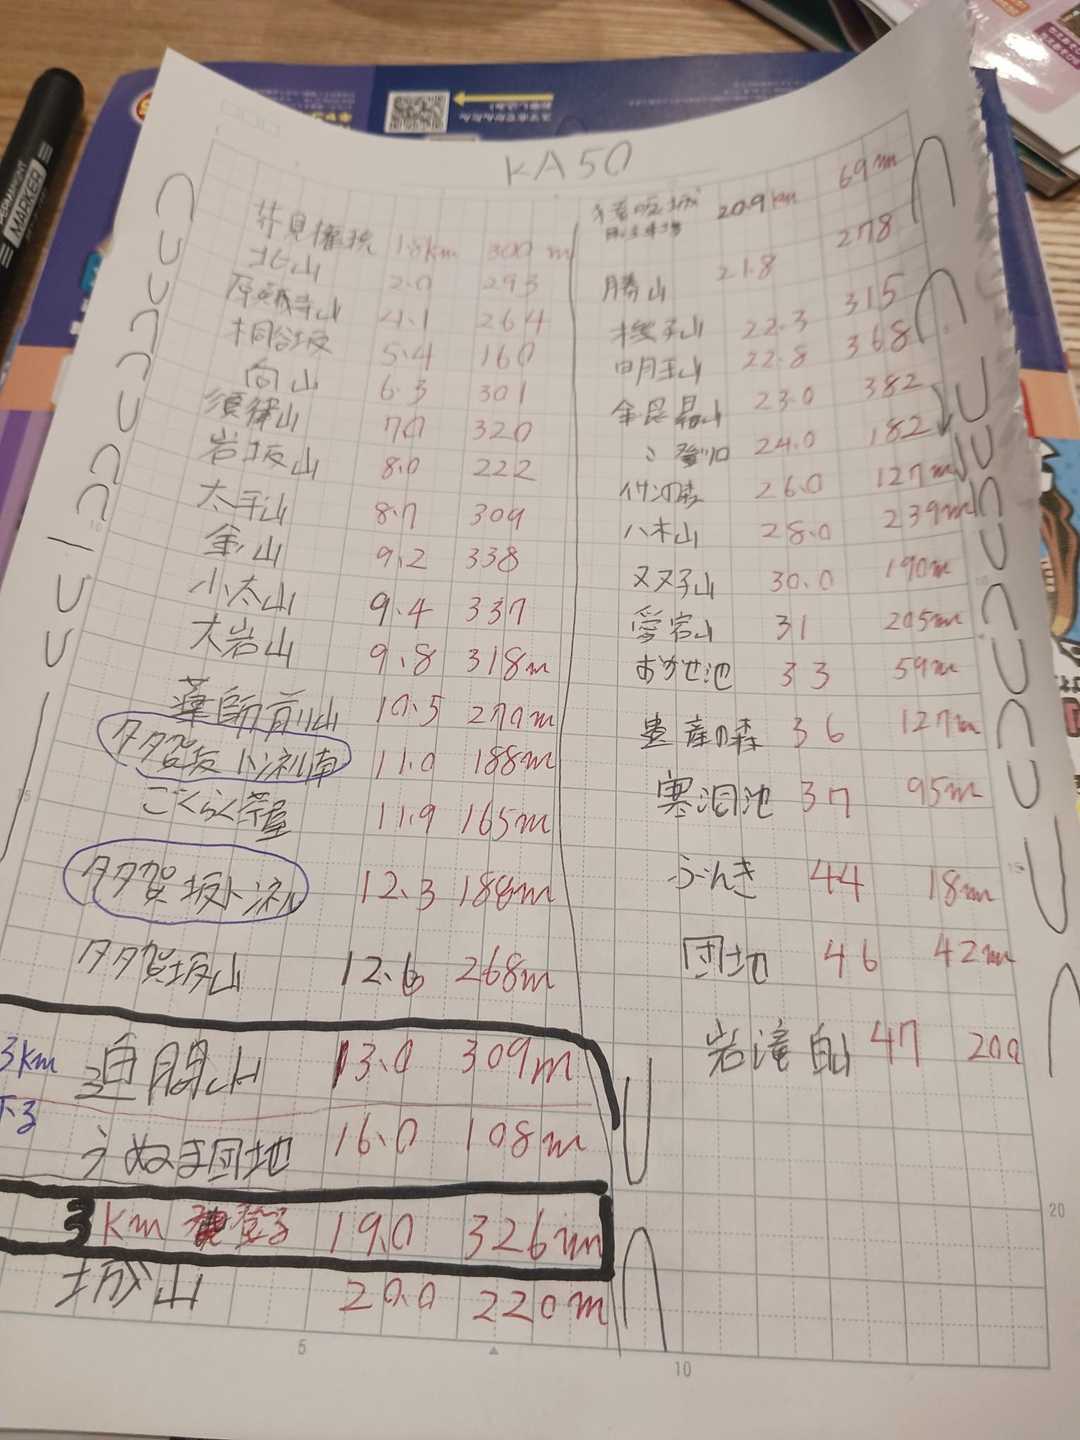 KA50
芥見権現 1.8km 300m
北山 2.0 293
4.1 264
桐谷坂 5.4 160
向山 6.3 301
須衛山 7.0 320
岩坂山 8.0 222
8.7 309
金山 9.2 338
小太山 9.4 337
大岩山 9.8 318m
薬師前山 10.5 270m
タタ賀坂トンネル南 11.0 188m
ごくらく茶屋 11.9 165m
タタ賀坂トンネル 12.3 188m
タタ賀坂山 12.6 268m
3km
下る
迫間山 13.0 309m
うぬま団地 16.0 108m
3km 登る 19.0 326m
城山 20.0 220m
猿啄城 20.9km 69m
勝山 21.8 278
22.3 315
明王山 22.8 368
金毘羅山 23.0 382
登り口 24.0 182
26.0 127m
八木山 28.0 239m
双子山 30.0 190m
愛宕山 31 205m
おがせ池 33 59m
の森 36 127m
寒洞池 37 95m
ふんき 44 18m
団地 46 42m
岩滝 47 200
PERMANENT
MARKER
5
10
15
20